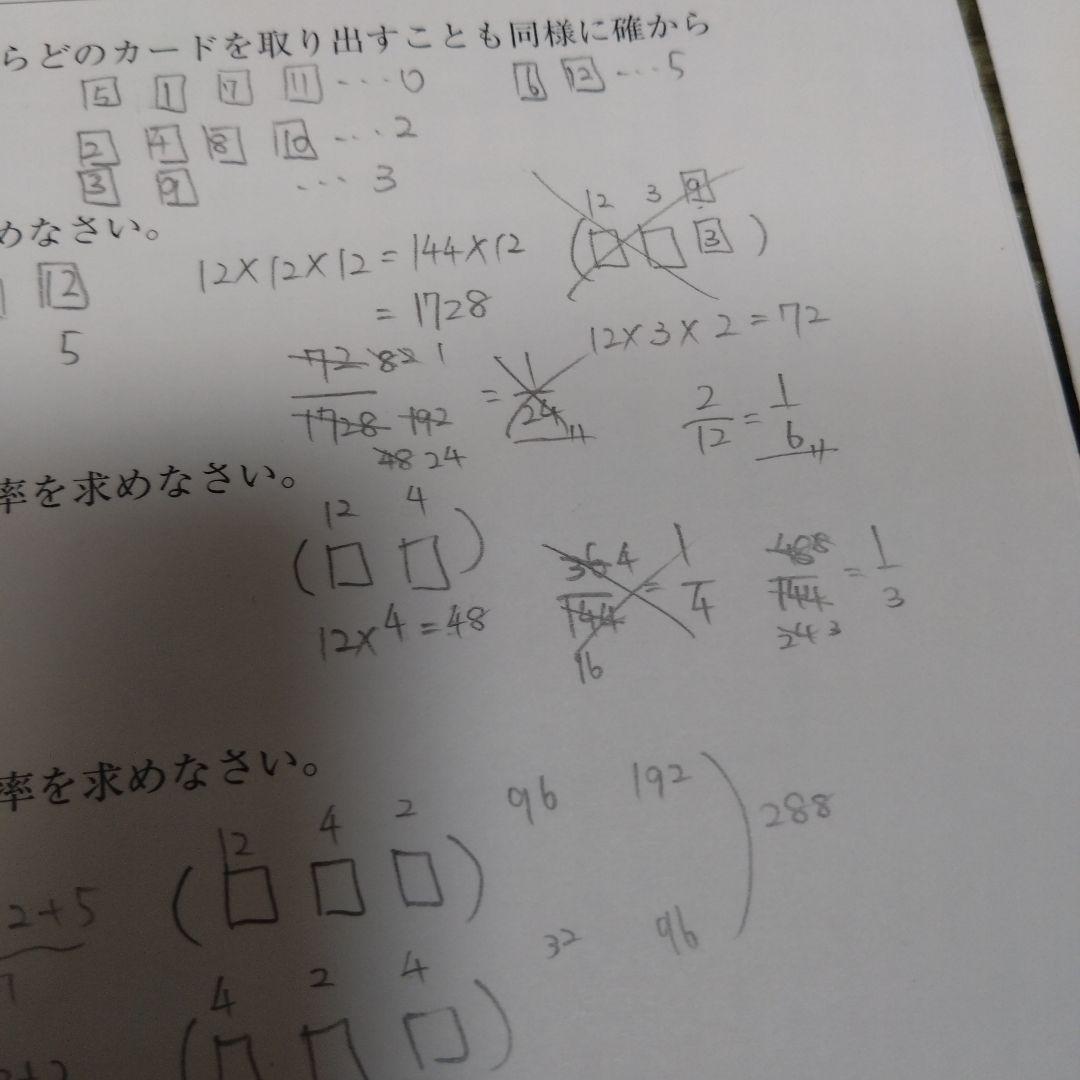 らどのカードを取り出すことも同様に確から
5 1 7 11 ... 0 6 12 ... 5
2 4 8 10 ... 2
3 9 ... 3
めなさい。
12
5
12×12×12=144×12
=1728
12 3 9
(□ □ 3)
12×3×2=72
72 8 2 1
1728 192
48 24
= 1/24
2/12 = 1/6
率を求めなさい。
12 4
(□ □)
12×4=48
36 4
144
16
= 1/4
48 8
144
24 3
= 1/3
率を求めなさい。
12 4 2
(□ □ □)
96 192
288
32 96
2+5
4 2 4
(□ □ □)